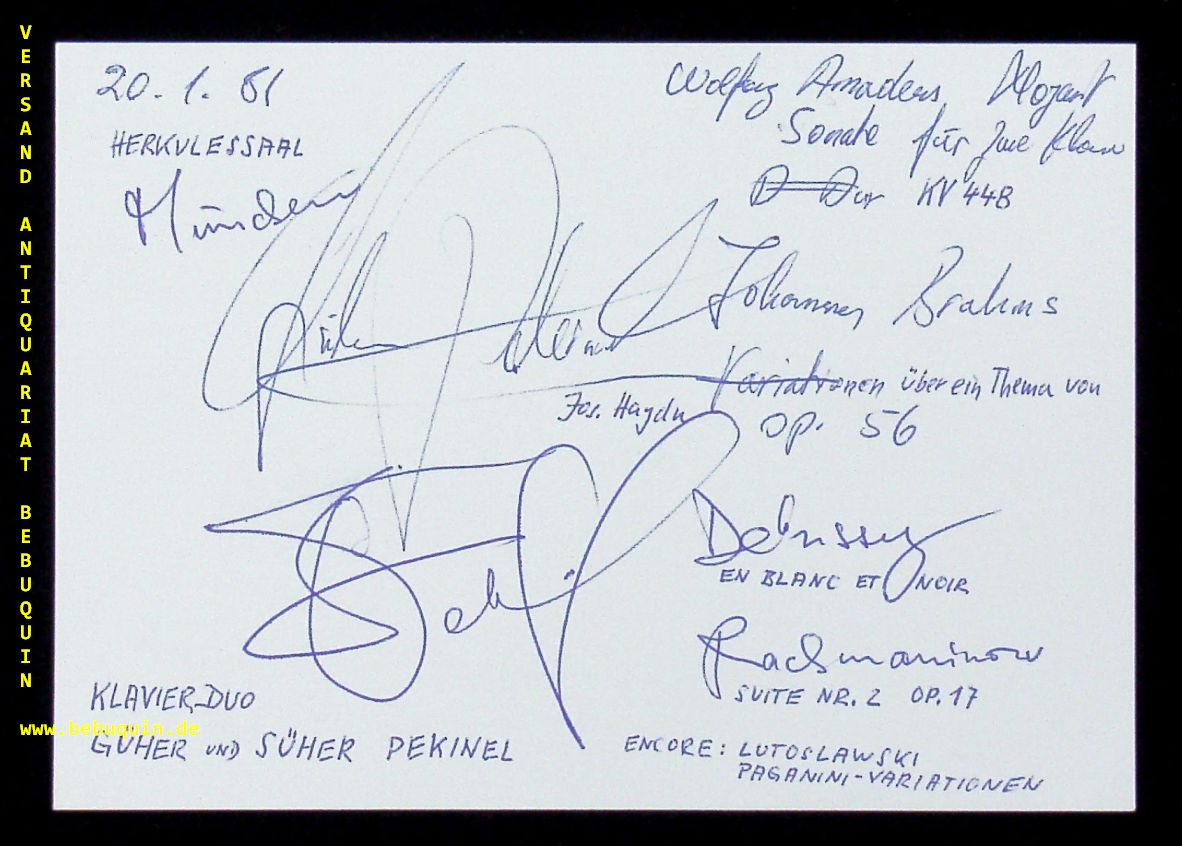 VERSAND ANTIQUARIAT BEBUQUIN
20. 1. 81
HERKULESSAAL
München
Wolfg Amadeus Mozart
Sonate für zwei Klav
D Dur KV 448
Johannes Brahms
Variationen über ein Thema von
Jos. Haydn
op. 56
Debussy
EN BLANC ET NOIR
Rachmaninow
SUITE NR. 2 OP. 17
KLAVIER-DUO
www.bebuquin.de
GÜHER UND SÜHER PEKINEL
ENCORE: LUTOSLAWSKI
PAGANINI-VARIATIONEN